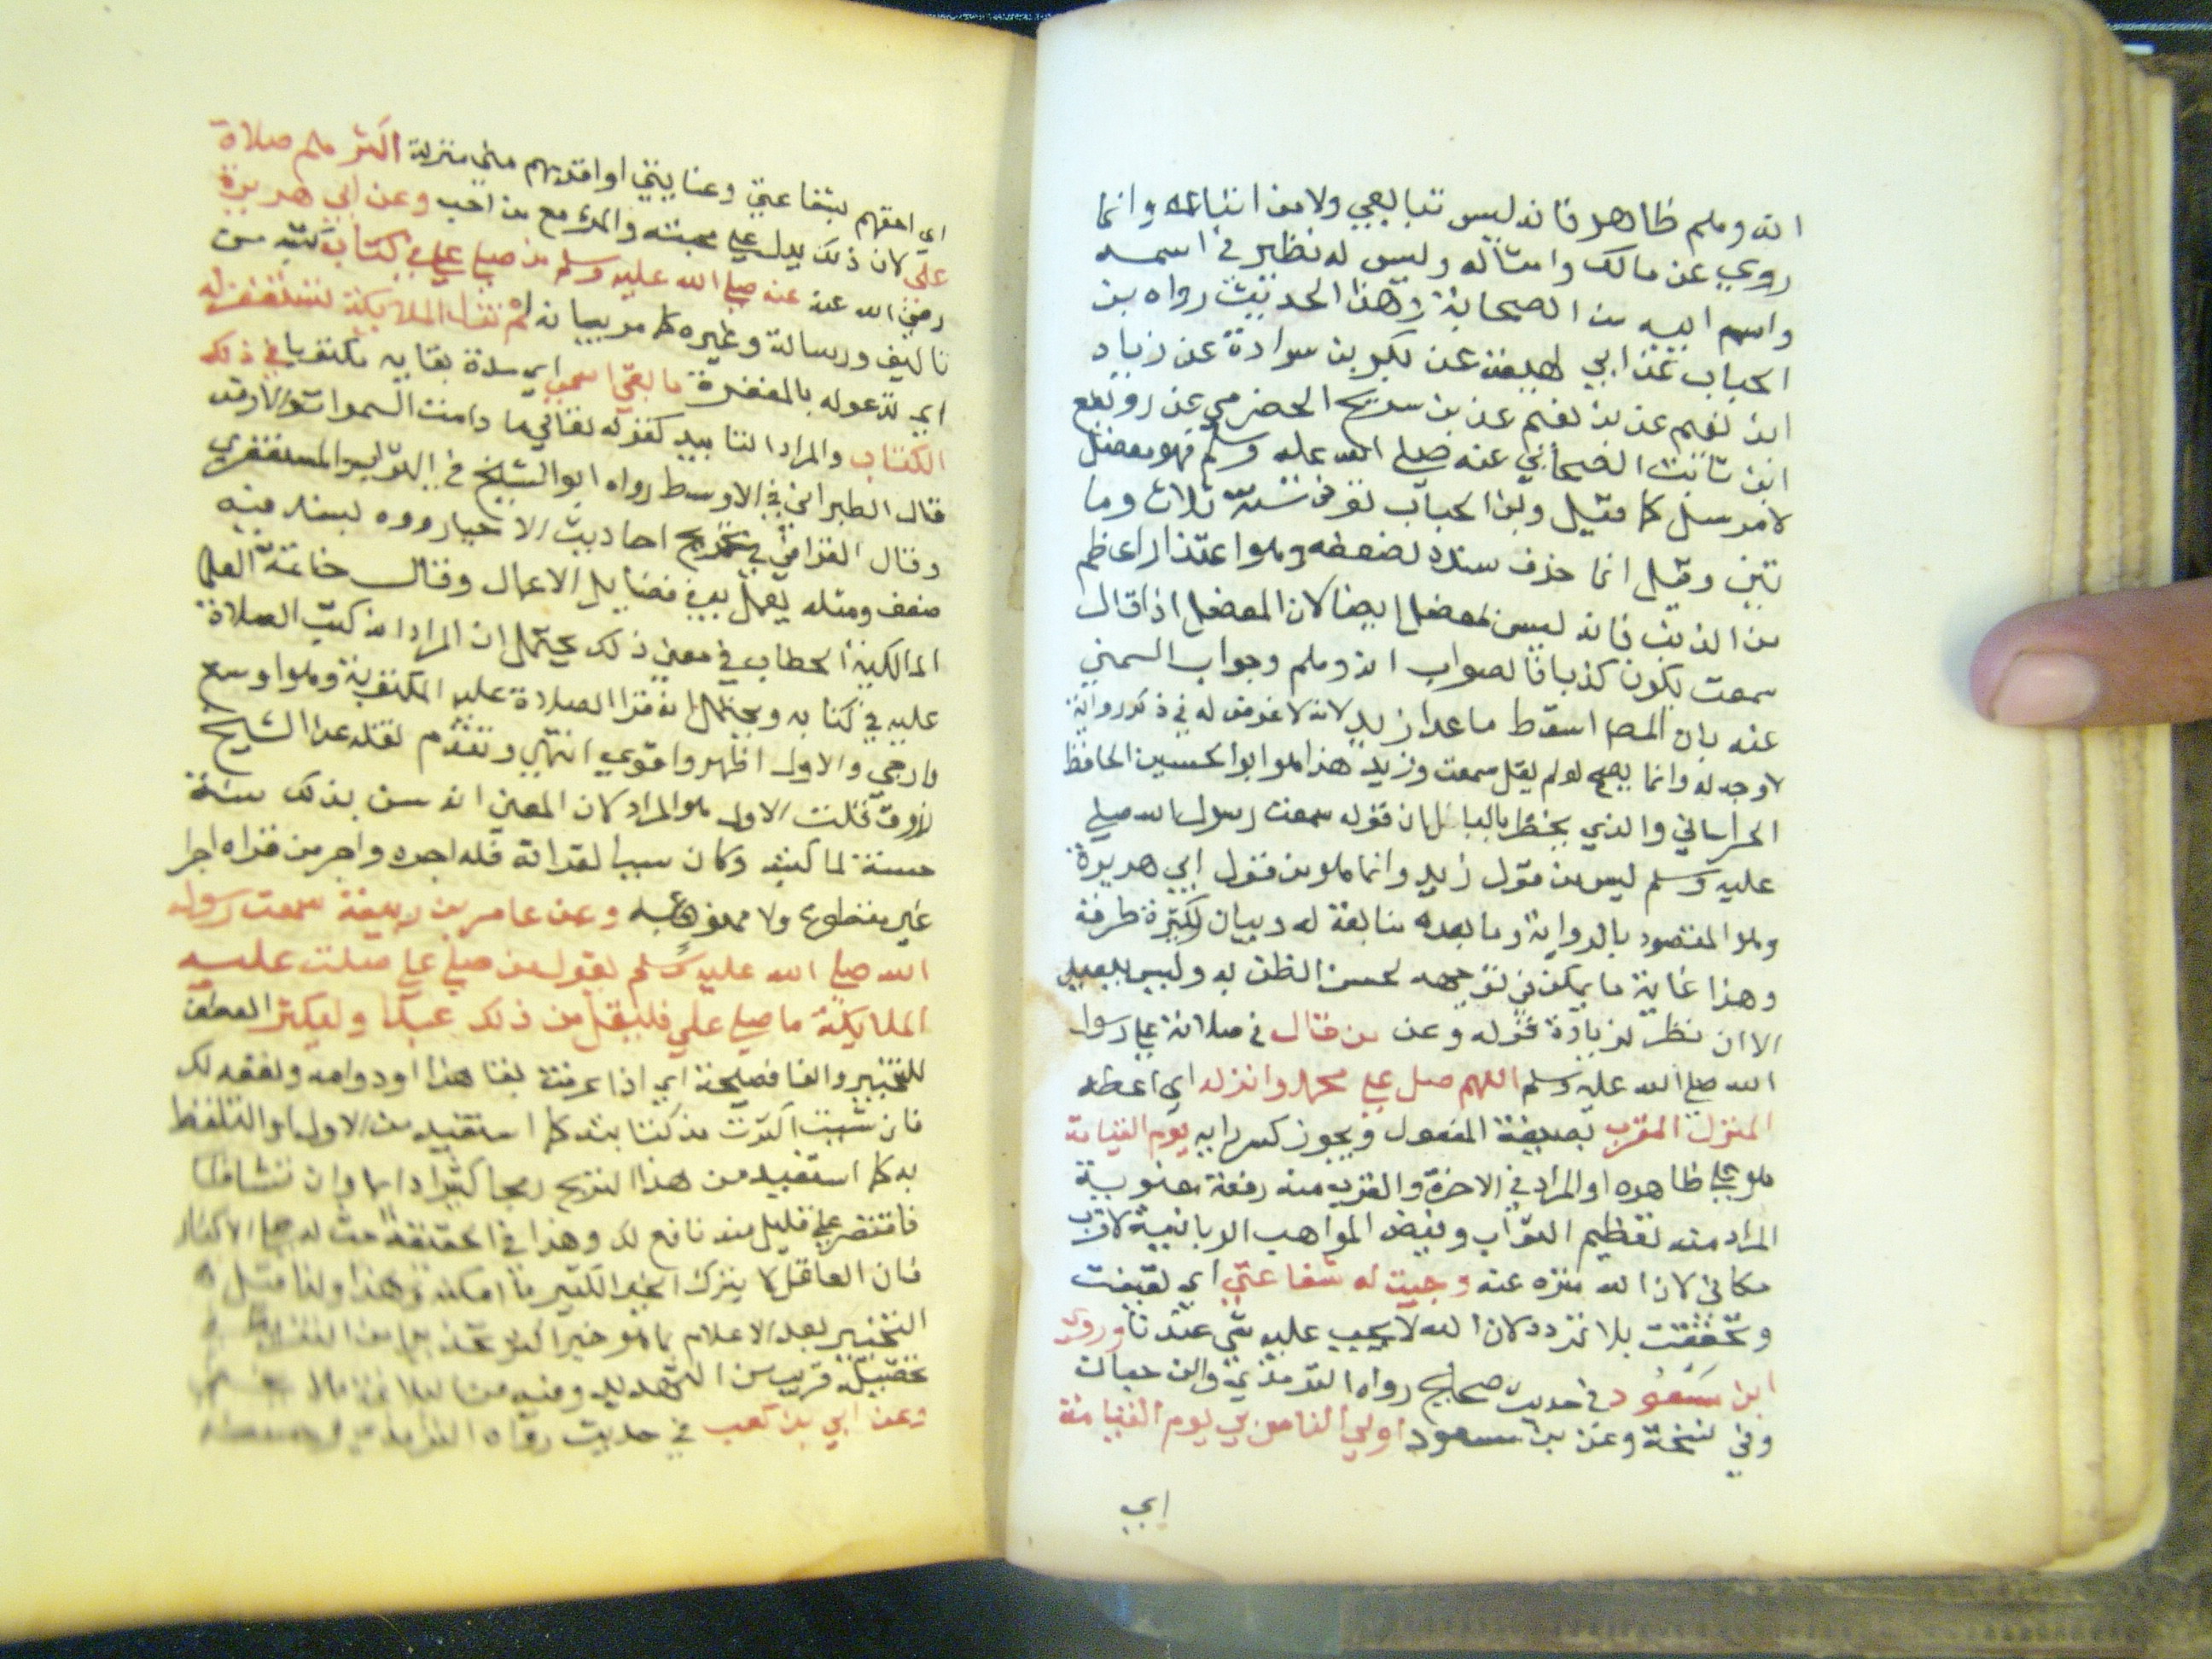 انه وهم ظاهر فانه ليس تبابعي ولا من اتباعه وانما
روي عن مالك وامثاله وليس له نظير في اسمه
واسم ابيه من الصحابة وهذا الحديث رواه بن
الحباب عن ابي لهيعة عن بكر بن سوادة عن زياد
ابن نعيم عن بن سريح الحضرمي عن رويفع
ابن ثابت الصحابي عنه صلى الله عليه وسلم فهو معضل
لا مرسل كما قيل وابن الحباب توفى سنة ثلاث وما
تين وقيل انما حذف سنده لضعفه وهو اعتذار اعظم
من الذنب فانه ليس لمعضل ايضا لان المعضل اذا قال
سمعت يكون كذبا فالصواب انه وهم وجواب السمني
عنه بان المص اسقط ما عدا زيد لانه لا غرض له في ذكر رواية
لا وجه له وانما يصح لو لم يقل سمعت وزيد هذا هو ابو الحسين الحافظ
الخراساني والذي يخطر بالبال ان قوله سمعت رسول الله صلى
عليه وسلم ليس من قول زيد وانما هو من قول ابي هريرة
وهو المقصود بالرواية وما بعده متابعة له وبيان لكثرة طرقه
وهذا غاية ما يمكن في توجيهه لحسن الظن به وليس ببعيد
الا ان نظر لزيادة قوله وعن من قال في صلاته على رسول
الله صلى الله عليه وسلم اللهم صل على محمد وانزله اي اعطه
المنزل المقرب بصيغة المفعول ويجوز كسر رايه يوم القيامة
هو على ظاهره او المراد في الاخرة والقرب منه رفعة معنوية
المراد منه تعظيم الثواب وفيض المواهب الربانية لا قرب
مكاني لان الله منزه عنه وجبت له شفاعتي اي لقيت
وتحققت بلا تردد لان الله لا يجب عليه شي عندنا وروى
ابن مسعود في حديث صحيح رواه الترمذي وابن حبان
وفي نسخة وعن بن مسعود اولى الناس بي يوم القيامة
اي
اي احقهم بشفاعتي وعنايتي او اقربهم مني منزلة اكثرهم صلاة
علي لان ذلك يدل على محبته والمرء مع من احب وعن ابي هريرة
رضي الله عنه عنه صلى الله عليه وسلم من صلى علي في كتاب كتبه من
تاليف ورسالة وغيره كما مر بيانه لم تزل الملايكة تستغفر له
اي تدعو له بالمغفرة ما بقي اسمي اي مدة بقايه مكتوبا في ذلك
الكتاب والمراد التابيد كقوله تعالى ما دامت السموات والارض
قال الطبراني في الاوسط رواه ابو الشيخ في الثواب والمستغفري
وقال العراقي في تخريج احاديث الاحيا رووه بسند فيه
ضعف ومثله يعمل به في فضايل الاعمال وقال خاتمة العلما
المالكية الحطاب في معنى ذلك يحتمل ان المراد انه كتب الصلاة
عليه في كتابه ويحتمل انه قرا الصلاة عليه المكتوبة وهو اوسع
وارجى والاول اظهر واقوى انتهى وتقدم نقله عن الشيخ
زروق قلت الاول هو المراد لان المعنى انه سن بذلك سنة
حسنة لما كتبه وكان سببا لقراته فله اجره واجر من قراه اجرا
غير مقطوع ولا ممنوع وعن عامر بن ربيعة سمعت رسول
الله صلى الله عليه وسلم يقول من صلى علي صلت عليه
الملايكة ما صلى علي فليقل من ذلك عبد او ليكثر العطف
للتخيير والفا فصيحة اي اذا عرفت بقا هذا ودوامه ونفعه لك
فان شيت اكثرت من كتابته كما استفيد من الاول او التلفظ
به كما استفيد من هذا الترجح كثيرا دايما وان تشا
فاقتصر على قليل منه نافع لك وهذا في الحقيقة حث له على الاكثار
فان العاقل لا يترك الخير الكثير ما امكنه وهذا ولذا قيل
التخيير بعد الاعلام بما هو خير
قريب من التهديد وفيه من البلاغة ما لا
وعن ابي بن كعب في حديث رواه الترمذي